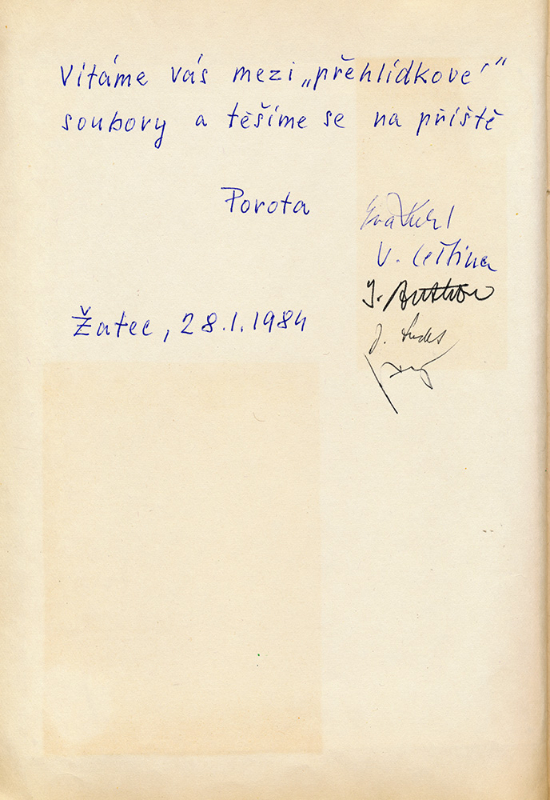 Vítáme vás mezi „přehlídkové“
soubory a těšíme se na příště
Porota
V.
J.
Žatec, 28.1.1984
J.